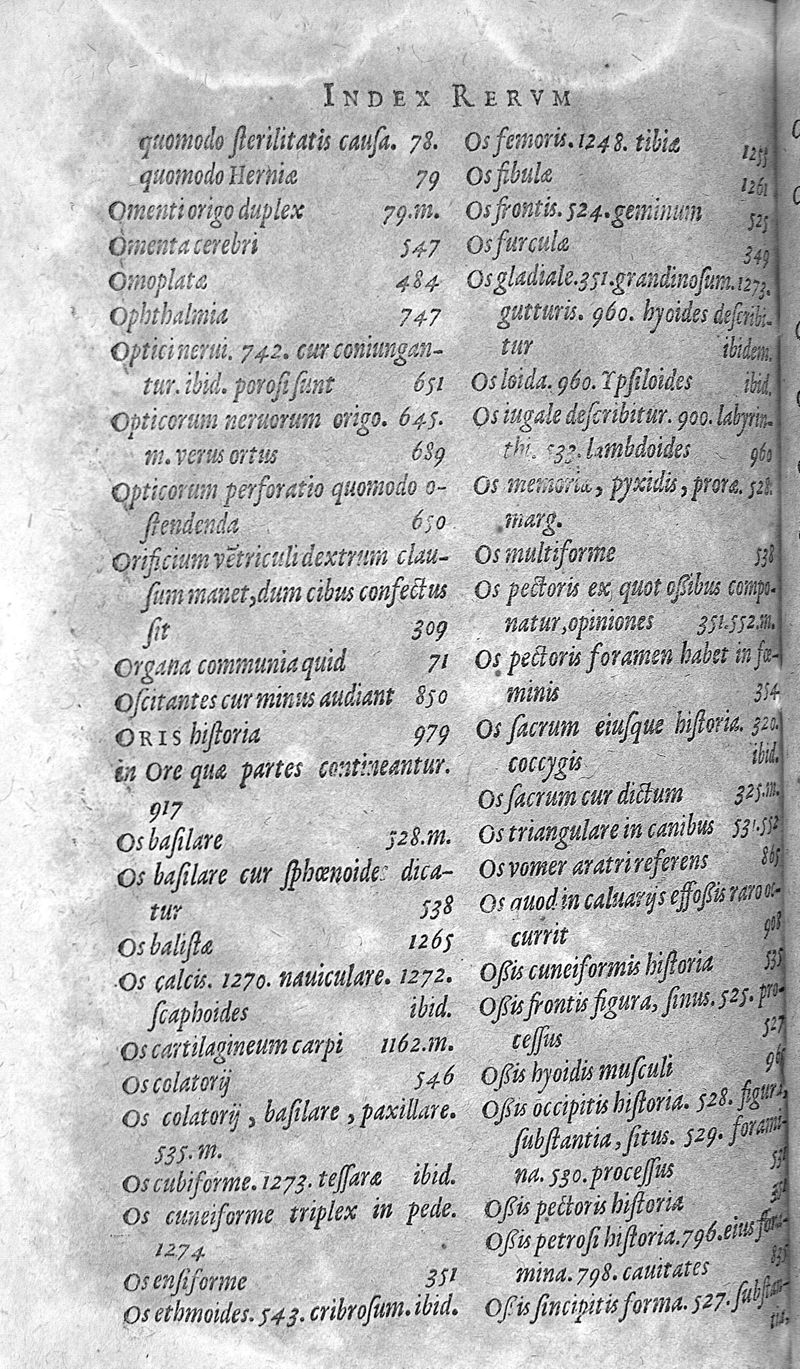 INDEX RERVM
quomodo ſterilitatis cauſa. 78.
quomodo Herniæ 79
Omenti origo duplex 79.m.
Omenta cerebri 547
Omoplatæ 484
Ophthalmia 747
Optici nerui. 742. cur coniungan-
tur. ibid. poroſi ſunt 651
Opticorum neruorum origo. 645.
m. verus ortus 689
Opticorum perforatio quomodo o-
ſtendenda 650
Orificium vẽtriculi dextrum clau-
ſum manet, dum cibus confectus
ſit 309
Organa communia quid 71
Oſcitantes cur minus audiant 850
ORIS hiſtoria 979
in Ore quæ partes contineantur.
917
Os baſilare 528.m.
Os baſilare cur ſphœnoides dica-
tur 538
Os baliſtæ 1265
Os calcis. 1270. nauiculare. 1272.
ſcaphoides ibid.
Os cartilagineum carpi 1162.m.
Os colatorij 546
Os colatorij, baſilare, paxillare.
535.m.
Os cubiforme. 1273. teſſaræ ibid.
Os cuneiforme triplex in pede.
1274
Os enſiforme 351
Os ethmoides. 543. cribroſum. ibid.
Os femoris. 1248. tibiæ 1255
Os fibulæ 1261
Os frontis. 524. geminum 525
Os furculæ 349
Os gladiale. 351. grandinoſum. 1273.
gutturis. 960. hyoides deſcribi-
tur ibidem.
Os loida. 960. Ypſiloides ibid.
Os iugale deſcribitur. 900. labyrin-
thi. 533. lambdoides 960
Os memoria, pyxidis, proræ. 528.
marg.
Os multiforme 538
Os pectoris ex quot oßibus compo-
natur, opiniones 351.552.m.
Os pectoris foramen habet in fœ-
minis 354
Os ſacrum eiuſque hiſtoria. 320.
coccygis ibid.
Os ſacrum cur dictum 325.m.
Os triangulare in canibus 531.552
Os vomer aratri referens 865
Os quod in caluarijs effoßis raro oc-
currit 908
Oßis cuneiformis hiſtoria 535
Oßis frontis figura, ſinus. 525. pro-
ceſſus 527
Oßis hyoidis muſculi
Oßis occipitis hiſtoria. 528. figura,
ſubſtantia, ſitus. 529. forami-
na. 530. proceſſus 531
Oßis pectoris hiſtoria 351
Oßis petroſi hiſtoria. 796. eius fora-
mina. 798. cauitates 835
Oßis ſincipitis forma. 527. ſubſtan-
tia,